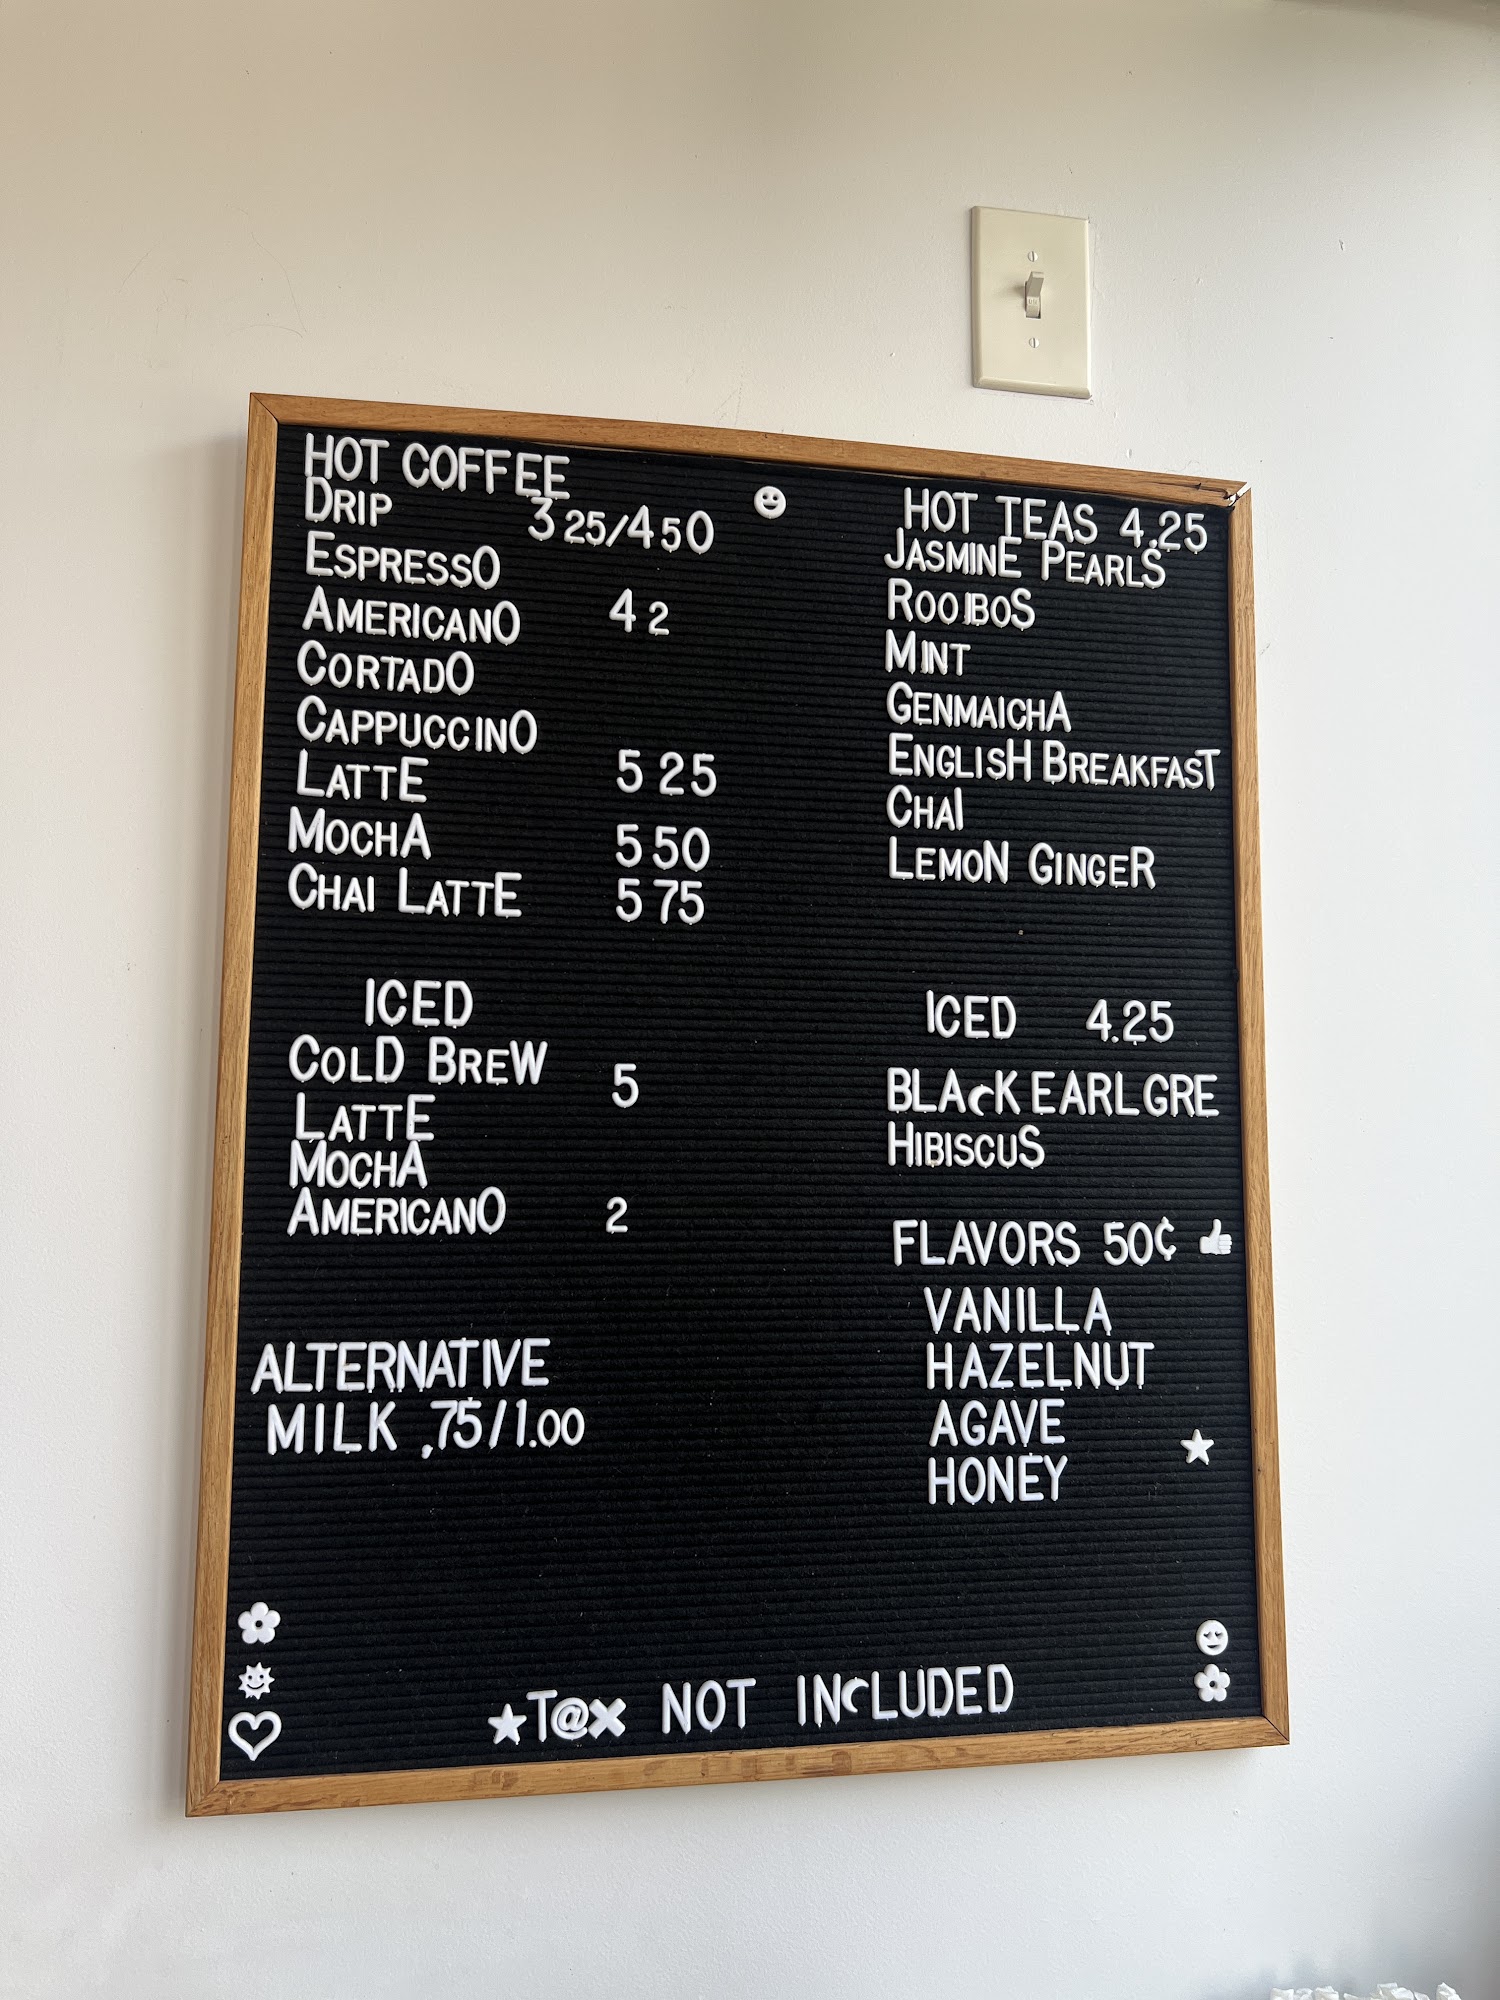 HOT COFFEE
DRIP 3 25/4 50
ESPRESSO
AMERICANO 4 2
CORTADO
CAPPUCCINO
LATTE 5 25
MOCHA 5 50
CHAI LATTE 5 75
ICED
COLD BREW 5
LATTE
MOCHA
AMERICANO 2
ALTERNATIVE
MILK .75/1.00
HOT TEAS 4.25
JASMINE PEARLS
ROOIBOS
MINT
GENMAICHA
ENGLISH BREAKFAST
CHAI
LEMON GINGER
ICED 4.25
BLACK EARL GRE
HIBISCUS
FLAVORS 50¢
VANILLA
HAZELNUT
AGAVE
HONEY
★T@X NOT INCLUDED